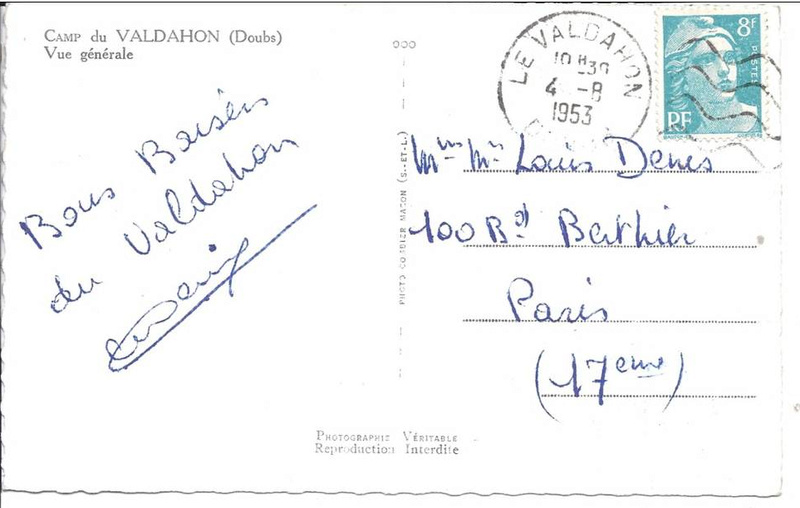 CAMP du VALDAHON (Doubs)
Vue générale
Bons Baisers
du Valdahon
LE VALDAHON
4 -8
1953
8F
POSTES
RF
Mme Mr Louis Denis
100 Bd Berthier
Paris
(17eme)
PHOTO COMBIER MACON (S.-ET-L.)
PHOTOGRAPHIE VÉRITABLE
Reproduction Interdite